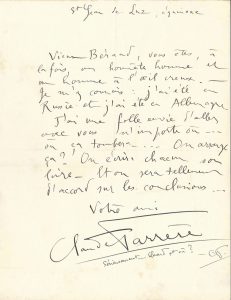 St Jean de Luz,
Vieux Béraud, vous êtes, à
la fois, un honnête homme, et
un homme à l'œil creux.
Je m'y connais : j'ai été en
Russie et j'ai été en Allemagne
J'ai une folle envie d'aller
avec vous n'importe où...
où ça tombera... On arrange
ça ? On écrira chacun son
livre. Et on sera tellement
d'accord sur les conclusions...
Votre ami
Claude Farrère
Sérieusement quand et où ?